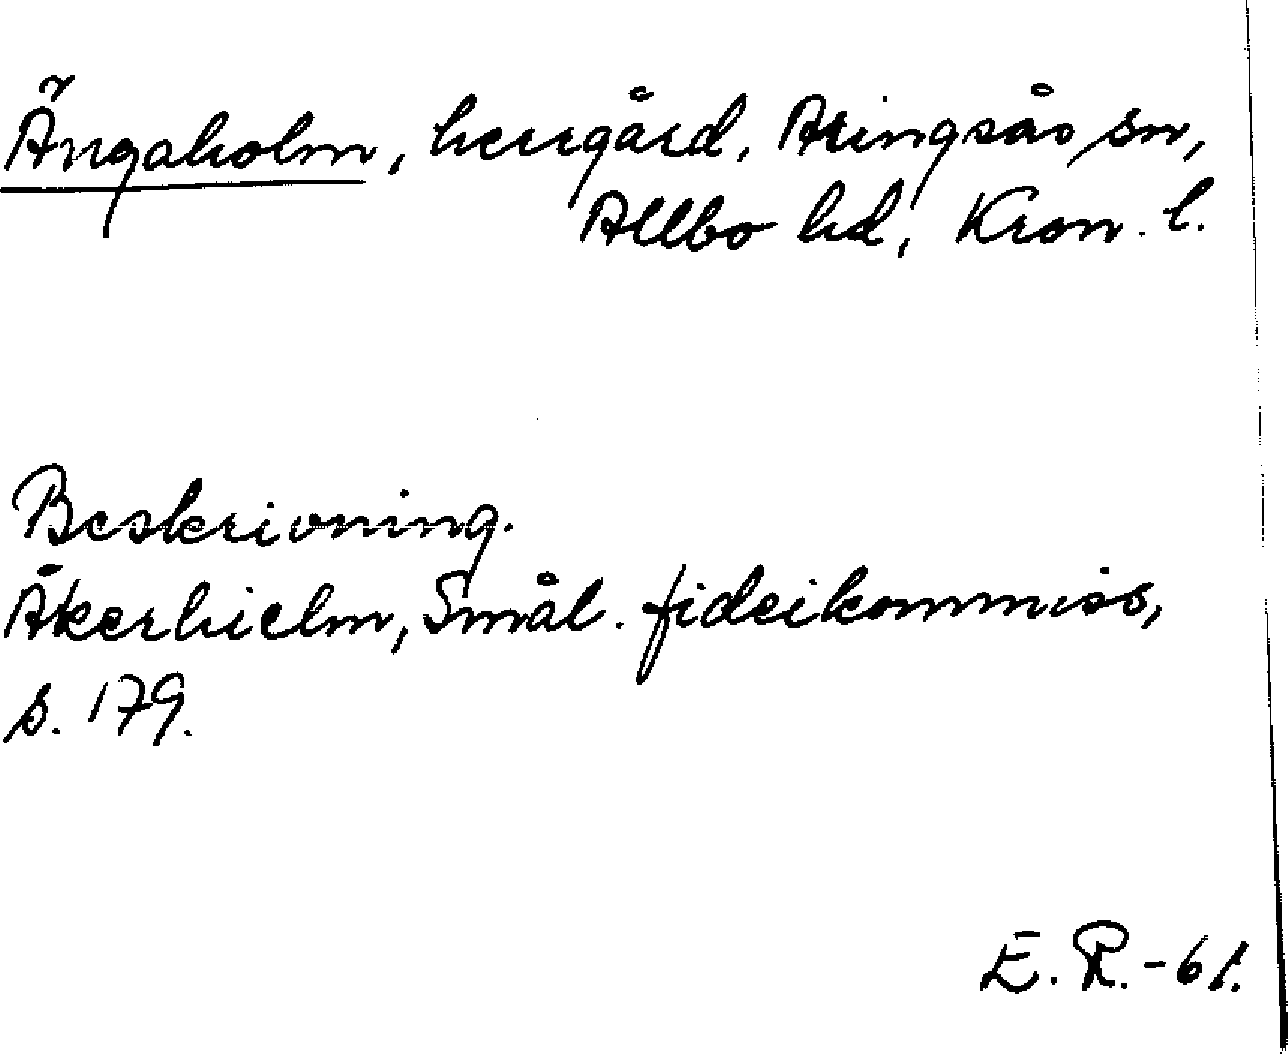 Ängaholm, herrgård, Aringsås sn,
Allbo hd, Kron. l.
Beskrivning.
Åkerhielm, Smål. fideikommiss,
s. 179.
E. R. - 61.